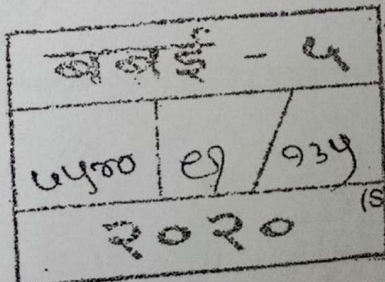 बबई - ५
५५७० ९ / १३५
२०२०
(S